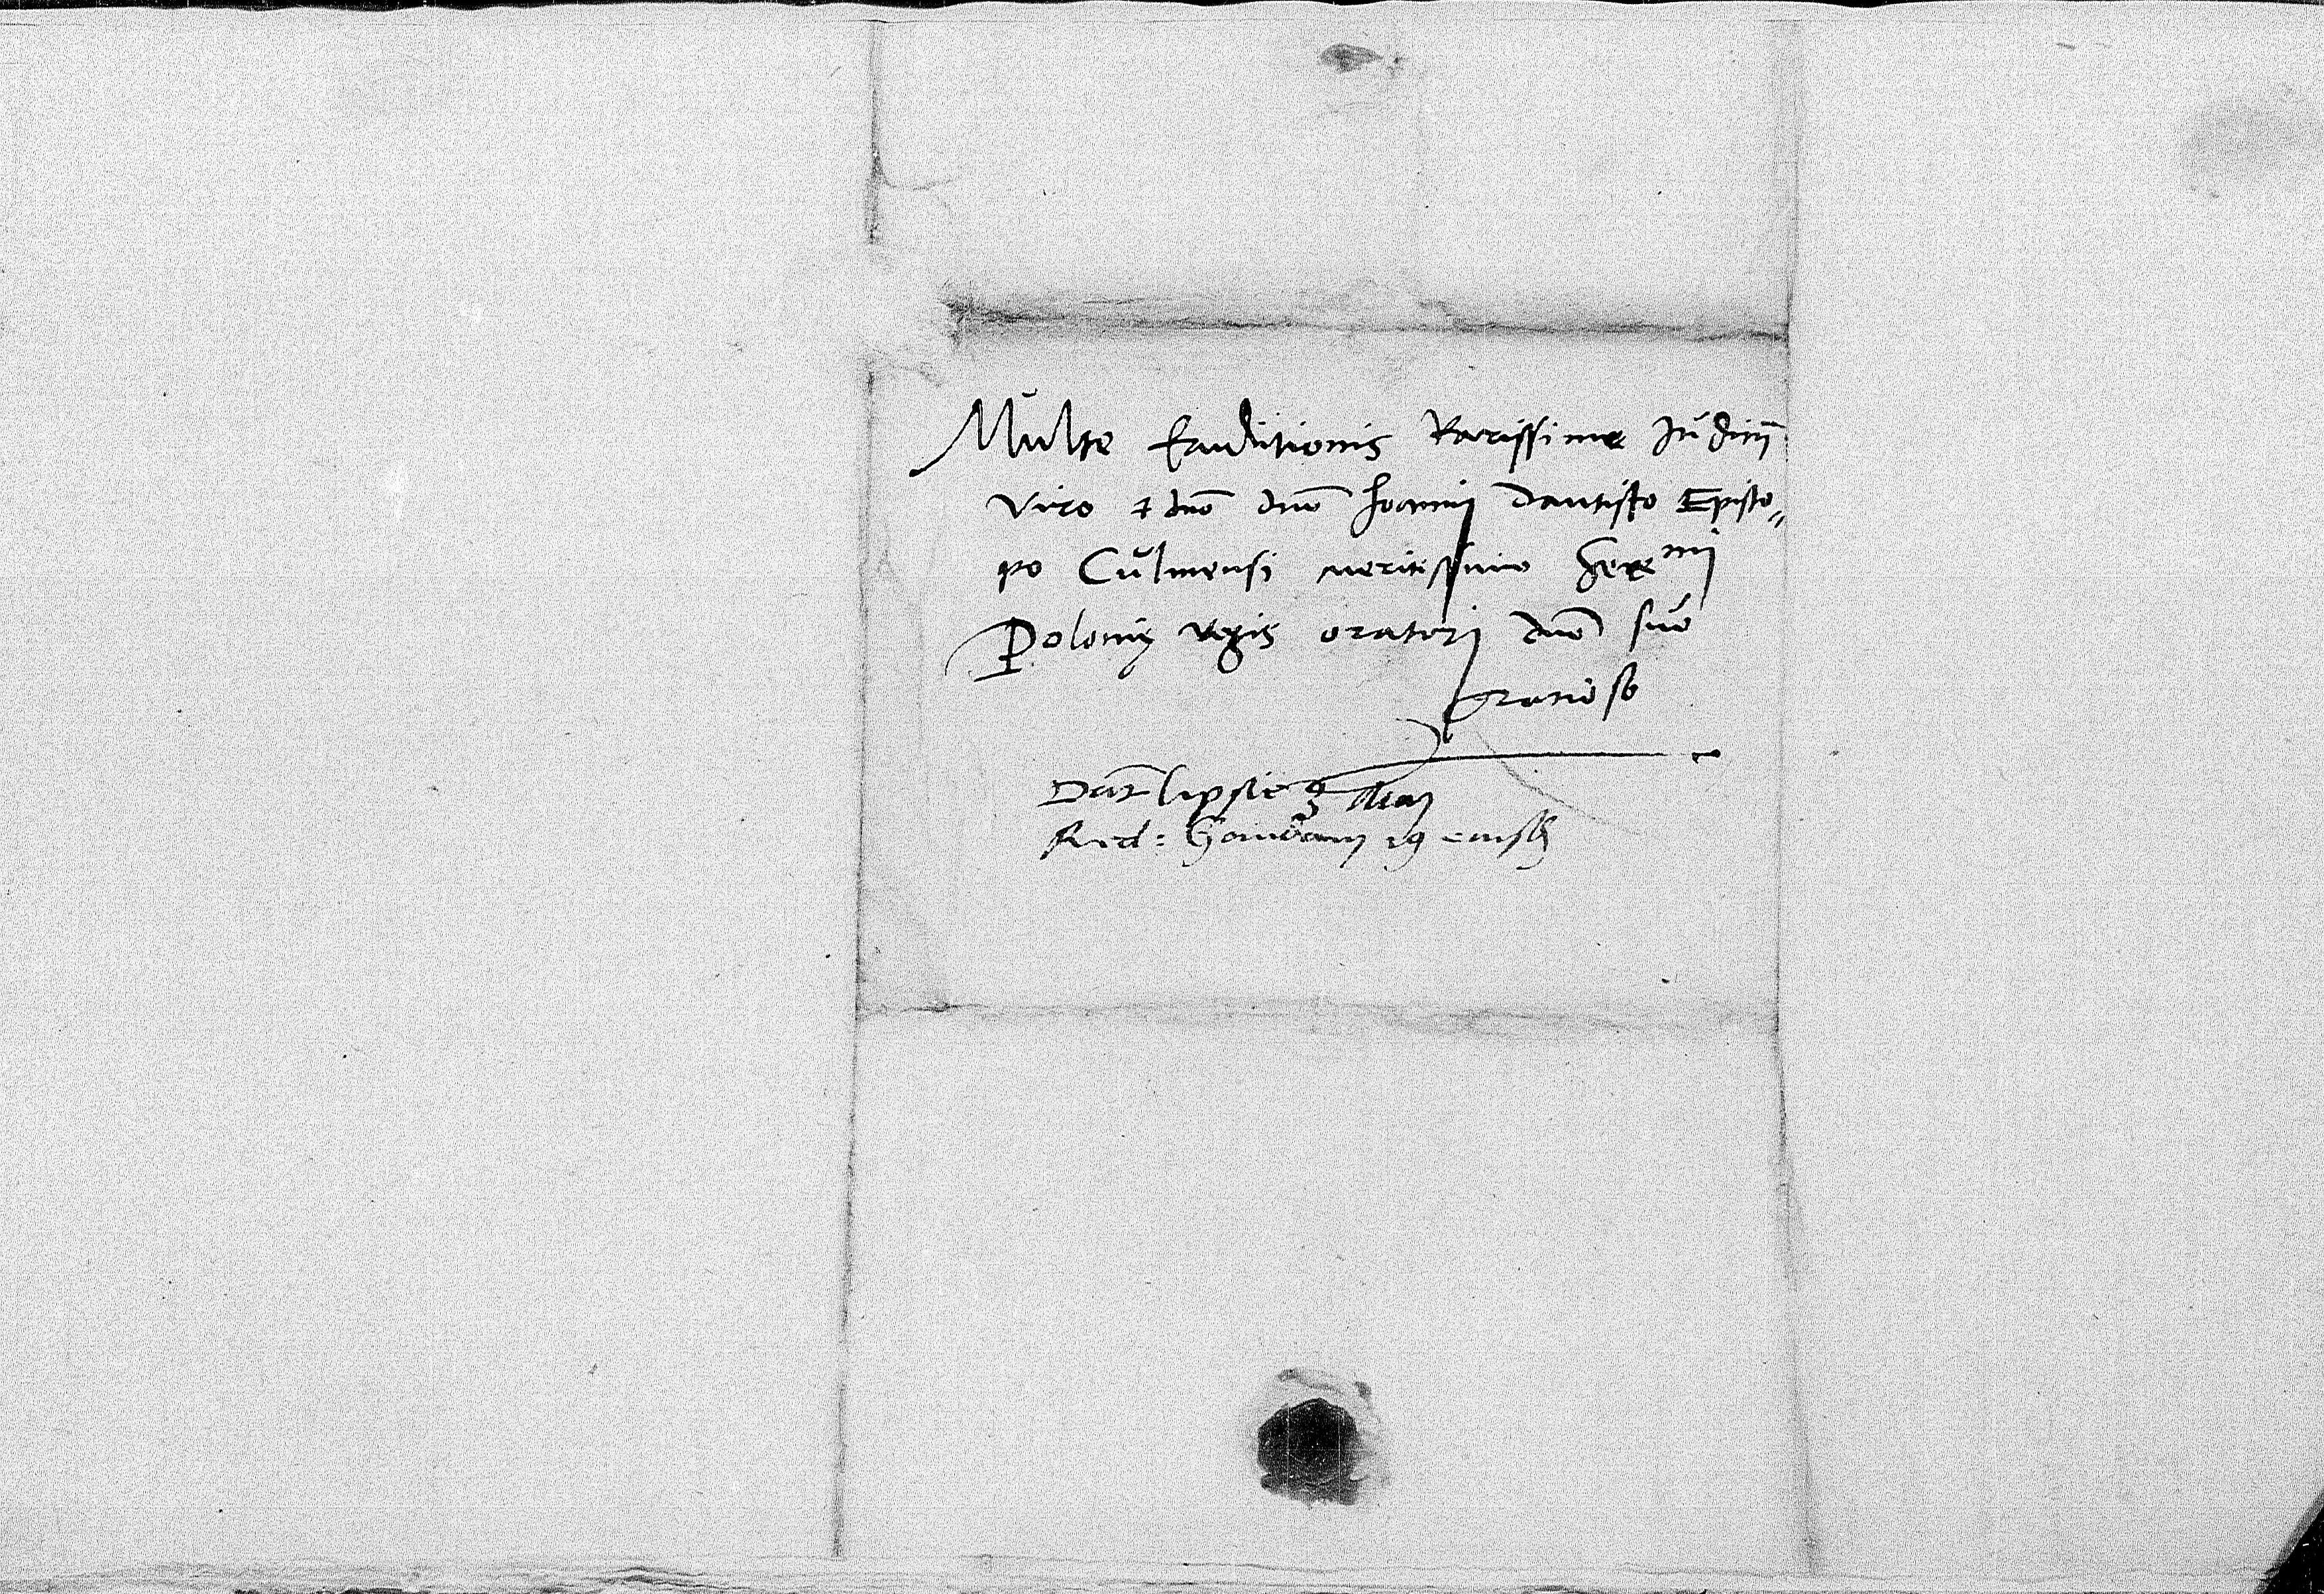 Multe Eruditionis Rarissime Judicij
viro et dno dno Joanni Dantisco Episco//
po Culmensi meritissimo Seremi
Polonie regis oratori dno suo
gratioso
Dat Lipsie 3 Maij
Red: Gandavi 19 eiusdem